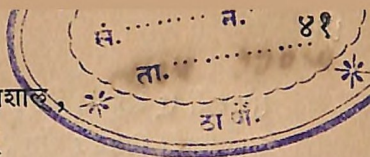 सं. ......... न. ४१
ता. ...............
शाल,
ठाणें.